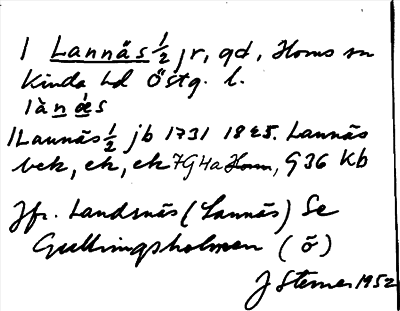 1 Lannäs ½ jr, gd, Horns sn
Kinda hd Östg. l.
lànæs
1 Lannäs ½ jb 1731 1825. Lannäs
bek, ek, ek 7G4a Horn, G36 Kb
Jfr. Landsnäs (Lannäs) Se
Gullringsholmen (ö)
J Sterner 1952